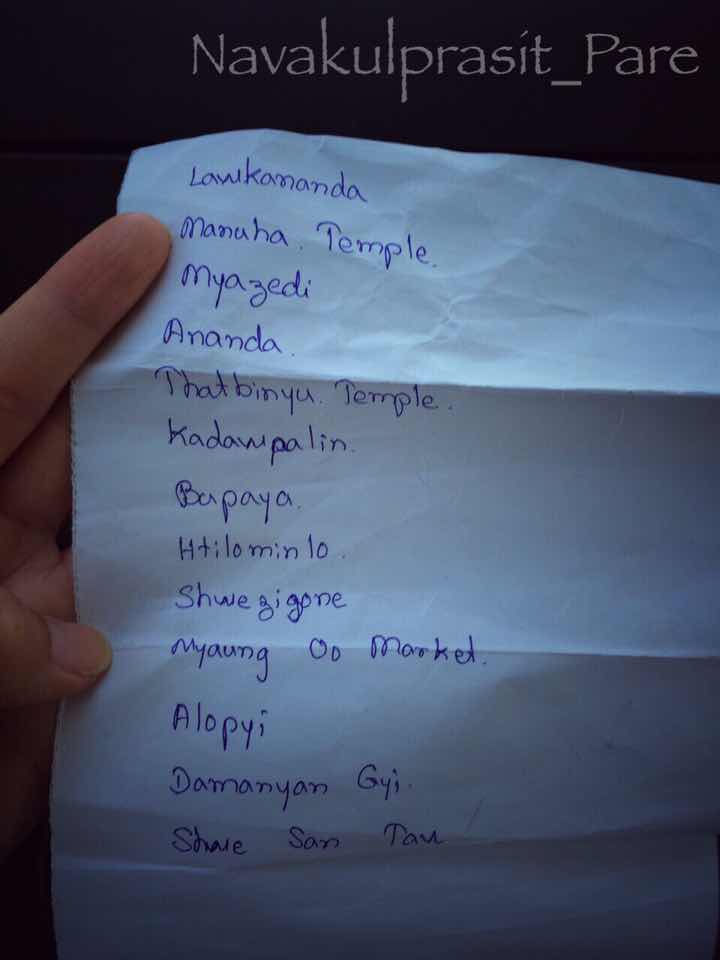 Navakulprasit_Pare
Lawkananda
Manuha. Temple.
Myazedi
Ananda.
Thatbinyu. Temple.
Kadawpalin.
Bupaya.
Htilominlo.
Shwezigone
Nyaung Oo Market.
Alopyi
Damanyan Gyi.
Shwe San Taw